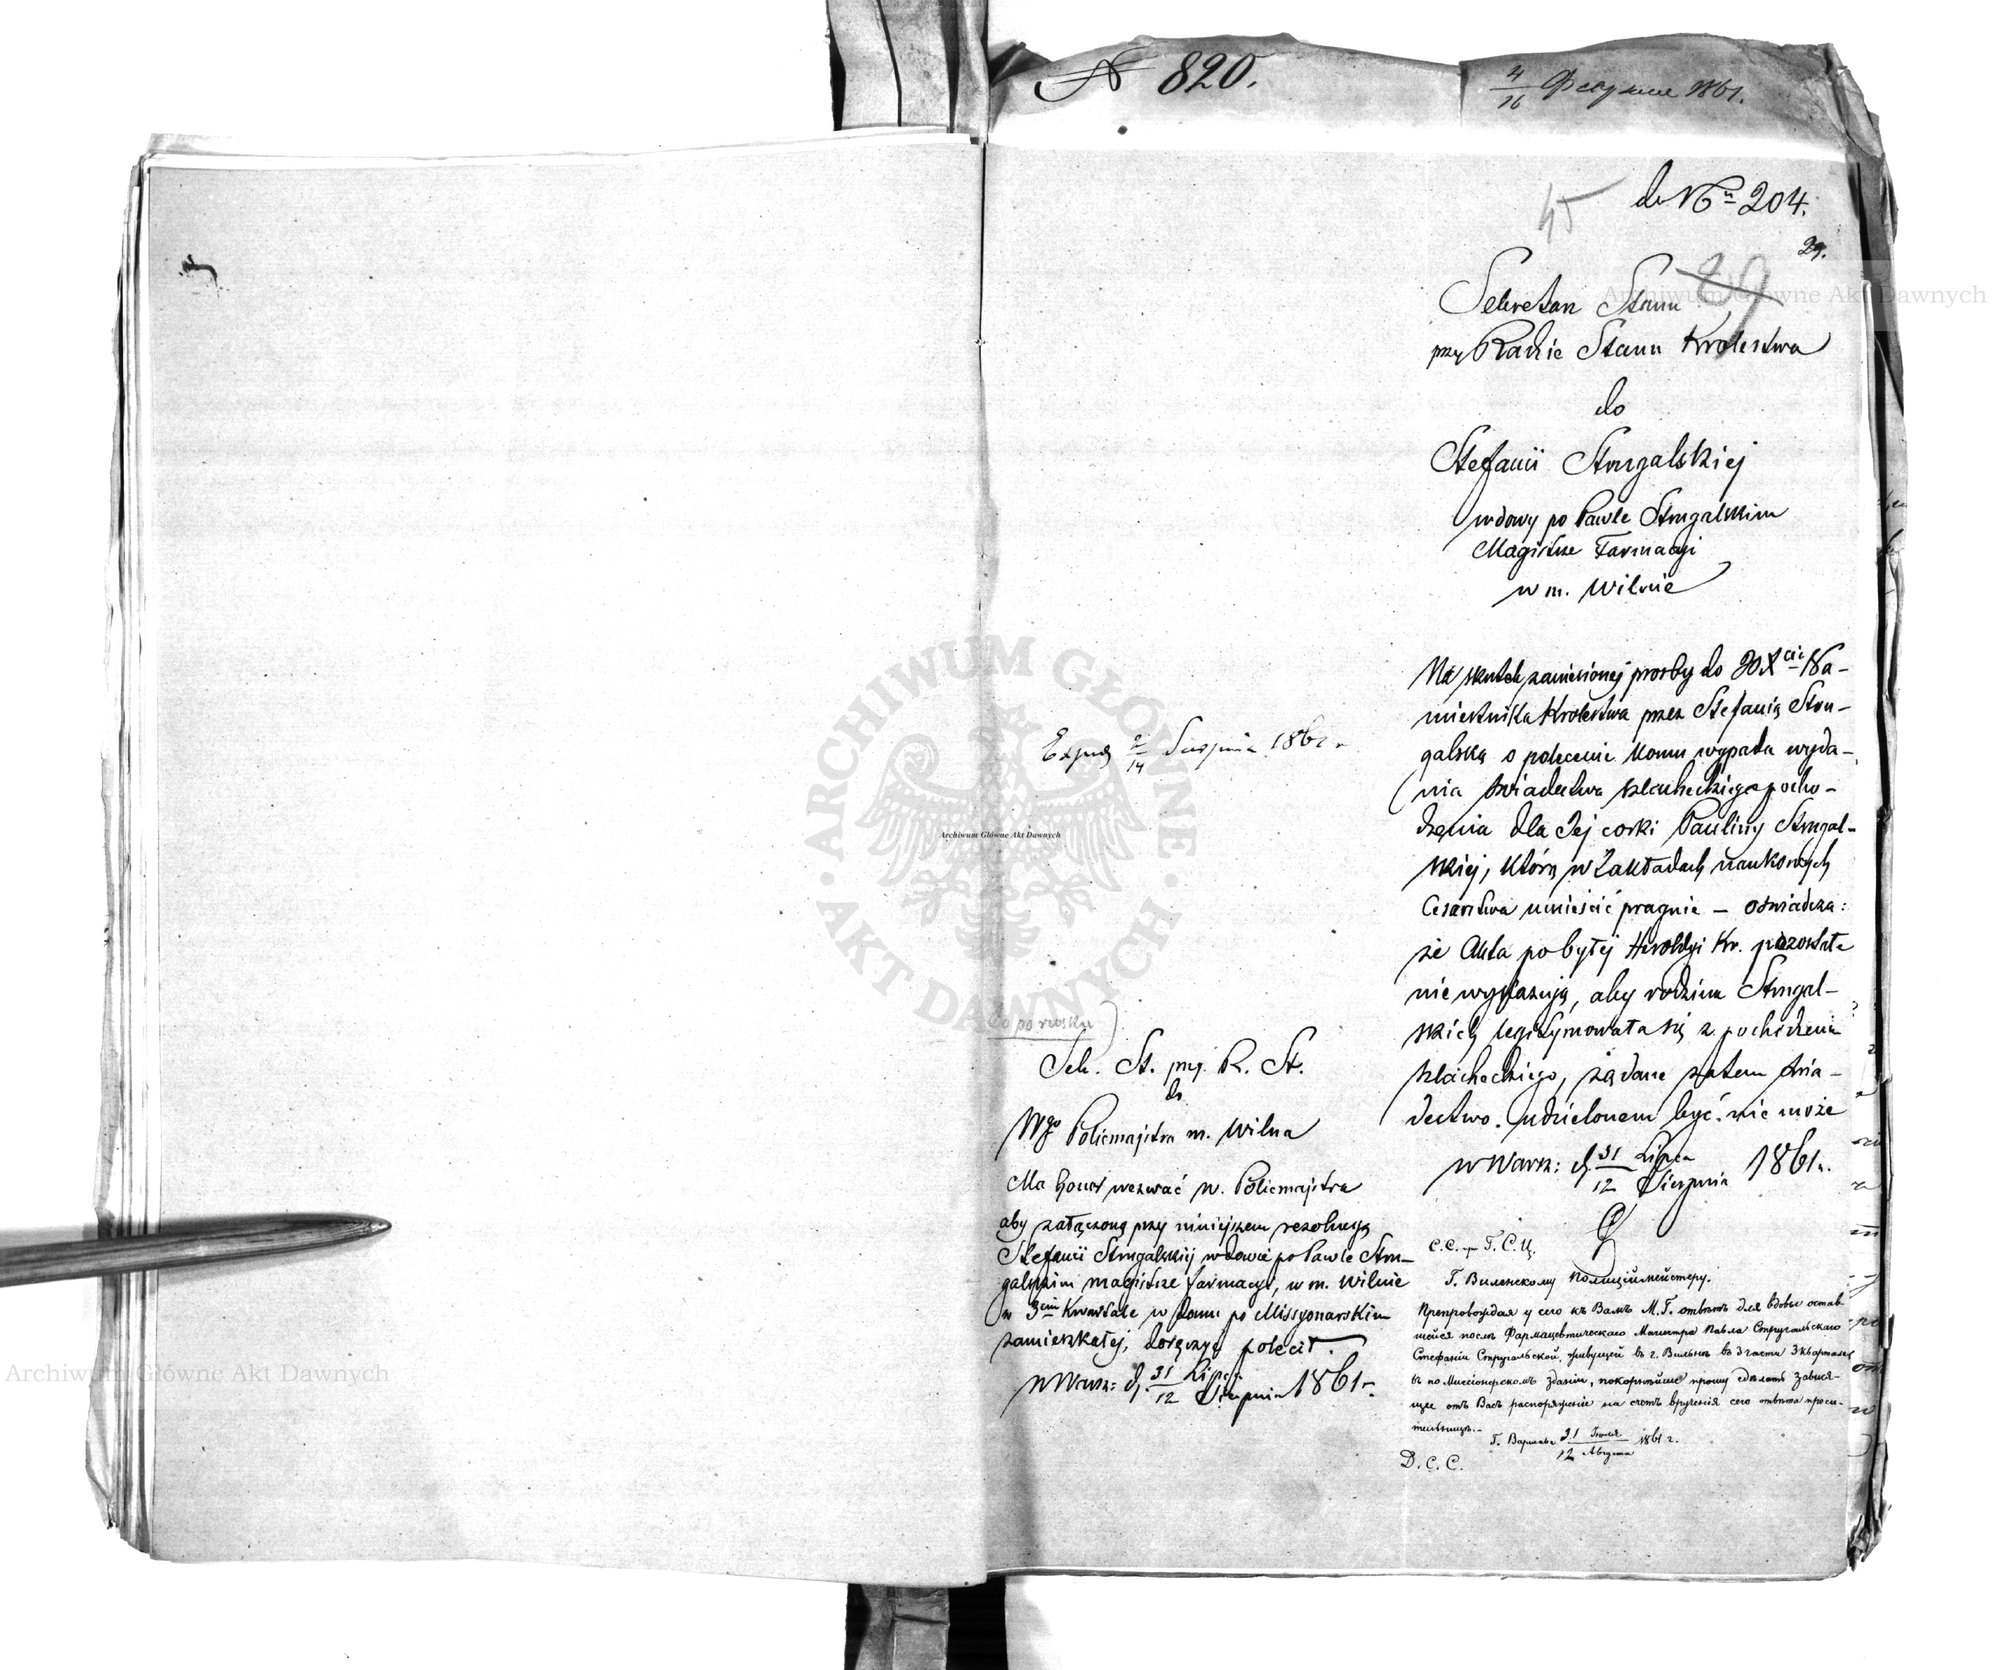 N 820.
4/16 1861.
45
do Nu 204.
29.
89
Sekretarz Stanu
przy Radzie Stanu Krolestwa
do
Stefanii Strugalskiej
wdowy po Pawle Strugalskim
Magistrze Farmacyi
w m. Wilnie
Na skutek zaniesionej prosby do JO Xcia Na-
miestnika Krolestwa przez Stefanią Stru-
galską o polecenie komu wypada wyda-
nia świadectwa szlacheckiego pocho-
dzenia dla Jej corki Pauliny Strugal-
skiej, którą w Zakładach naukowych
Cesarstwa umieścić pragnie – oświadcza:
że Akta po byłej Heroldyi Kr. pozostałe
nie wykazują, aby rodzina Strugal-
skich legitymowała się z pochodzenia
szlacheckiego, żądane zatem świa-
dectwo udzielonem być nie może
w Warsz: d. 31/12 Lipca/Sierpnia 1861 r.
Exped 2/14 Sierpnia 1861 r
to po rusku
Sek. St. przy R. St.
do
Wgo Policmajstra m. Wilna
Ma honor wezwać W. Policmajstra
aby załączoną przy niniejszem rezolucyą
Stefanii Strugalskiej wdowie po Pawle Stru-
galskim magistrze farmacyi, w m. Wilnie
w 3cim Kwartale w domu po Missyonarskim
zamieszkałej, doręczyć polecił.
w Warsz: d. 31/12 Lipca/Sierpnia 1861 r.
С.С. при Г.С.Ц.
Г. Виленскому Полициймейстеру.
Препровождая у сего къ Вамъ М.Г. отвѣтъ для вдовы остав-
шейся послѣ Фармацевтическаго Магистра Павла Стругальскаго
Стефаніи Стругальской, живущей въ г. Вильнѣ въ 3 части 3 квартала
въ по Миссіонерскомъ зданіи, покорнѣйше прошу сдѣлать завися-
щее отъ Васъ распоряженіе на счетъ врученія сего отвѣта проси-
тельницѣ.-
Г. Варшава 31/12 Іюля/Августа 1861 г.
Д.С.С.
ARCHIWUM GŁÓWNE AKT DAWNYCH
Archiwum Główne Akt Dawnych
Archiwum Główne Akt Dawnych
Archiwum Główne Akt Dawnych